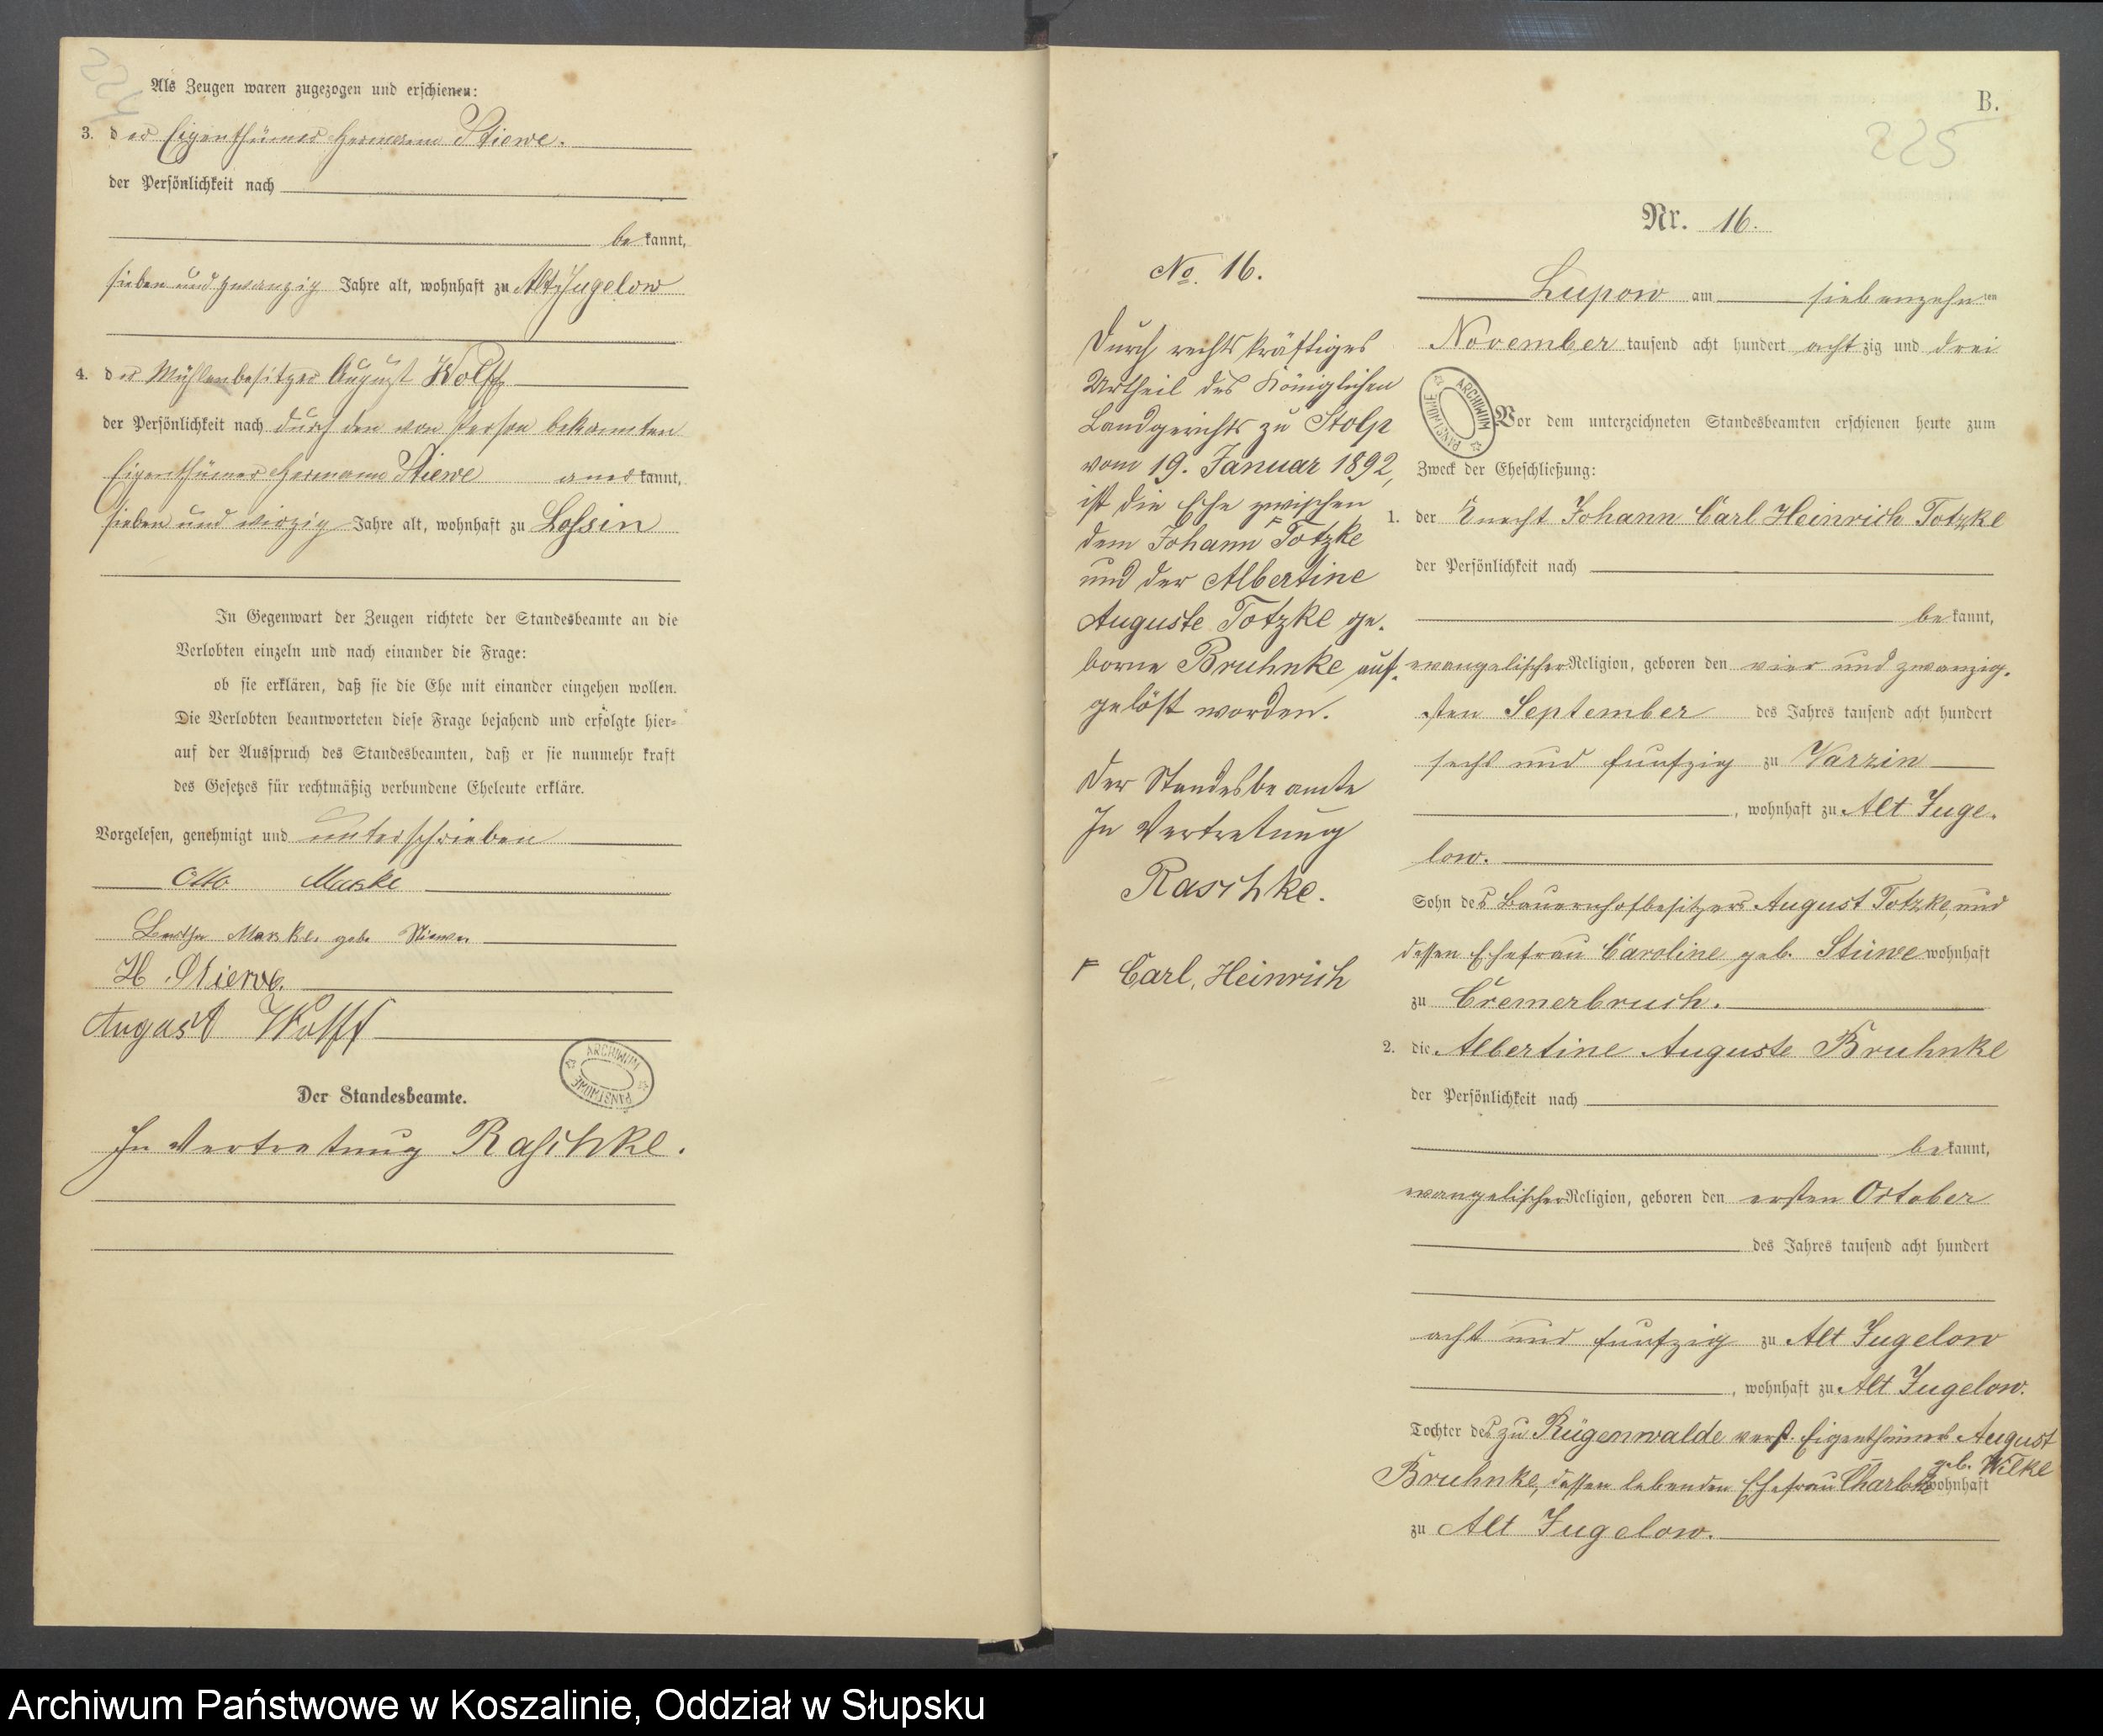 224
Als Zeugen waren zugezogen und erschienen:
3. der Eigenthümer Hermann Stiewe.
der Persönlichkeit nach
bekannt,
sieben und zwanzig Jahre alt, wohnhaft zu Alt Jugelow
4. der Mühlenbesitzer August Wolff
der Persönlichkeit nach durch den von Person bekannten
Eigenthümer Hermann Stiewe anerkannt,
sieben und vierzig Jahre alt, wohnhaft zu Lossin
In Gegenwart der Zeugen richtete der Standesbeamte an die
Verlobten einzeln und nach einander die Frage:
ob sie erklären, daß sie die Ehe mit einander eingehen wollen.
Die Verlobten beantworteten diese Frage bejahend und erfolgte hier-
auf der Ausspruch des Standesbeamten, daß er sie nunmehr kraft
des Gesetzes für rechtmäßig verbundene Eheleute erkläre.
Vorgelesen, genehmigt und unterschrieben
Otto Maske
Bertha Maske geb. Stiewe
H. Stiewe.
August Wolff
ARCHIWUM PAŃSTWOWE
Der Standesbeamte.
In Vertretung Raschke.
B.
225
Nr. 16.
Lupow am siebenzehnten
November tausend acht hundert achtzig und drei
ARCHIWUM PAŃSTWOWE
Vor dem unterzeichneten Standesbeamten erschienen heute zum
Zweck der Eheschließung:
1. der Knecht Johann Carl Heinrich Totzke
der Persönlichkeit nach
bekannt,
evangelischer Religion, geboren den vier und zwanzig-
sten September des Jahres tausend acht hundert
sechs und funfzig zu Varzin
, wohnhaft zu Alt Juge-
low.
Sohn des Bauernhofbesitzers August Totzke, und
dessen Ehefrau Caroline geb. Stüwe wohnhaft
zu Cremerbruch.
2. die Albertine Auguste Bruhnke
der Persönlichkeit nach
bekannt,
evangelischer Religion, geboren den ersten October
des Jahres tausend acht hundert
acht und funfzig zu Alt Jugelow
, wohnhaft zu Alt Jugelow.
Tochter des zu Rügenwalde verst. Eigenthümers August
Bruhnke, dessen lebenden Ehefrau Charlotte geb. Wilke wohnhaft
zu Alt Jugelow.
No. 16.
Durch rechtskräftiges
Urtheil des Königlichen
Landgerichts zu Stolp
vom 19. Januar 1892,
ist die Ehe zwischen
dem Johann ⌐ Totzke
und der Albertine
Auguste Totzke ge-
borne Bruhnke auf-
gelöst worden.
Der Standesbeamte
In Vertretung
Raschke.
⌐ Carl, Heinrich
Archiwum Państwowe w Koszalinie, Oddział w Słupsku